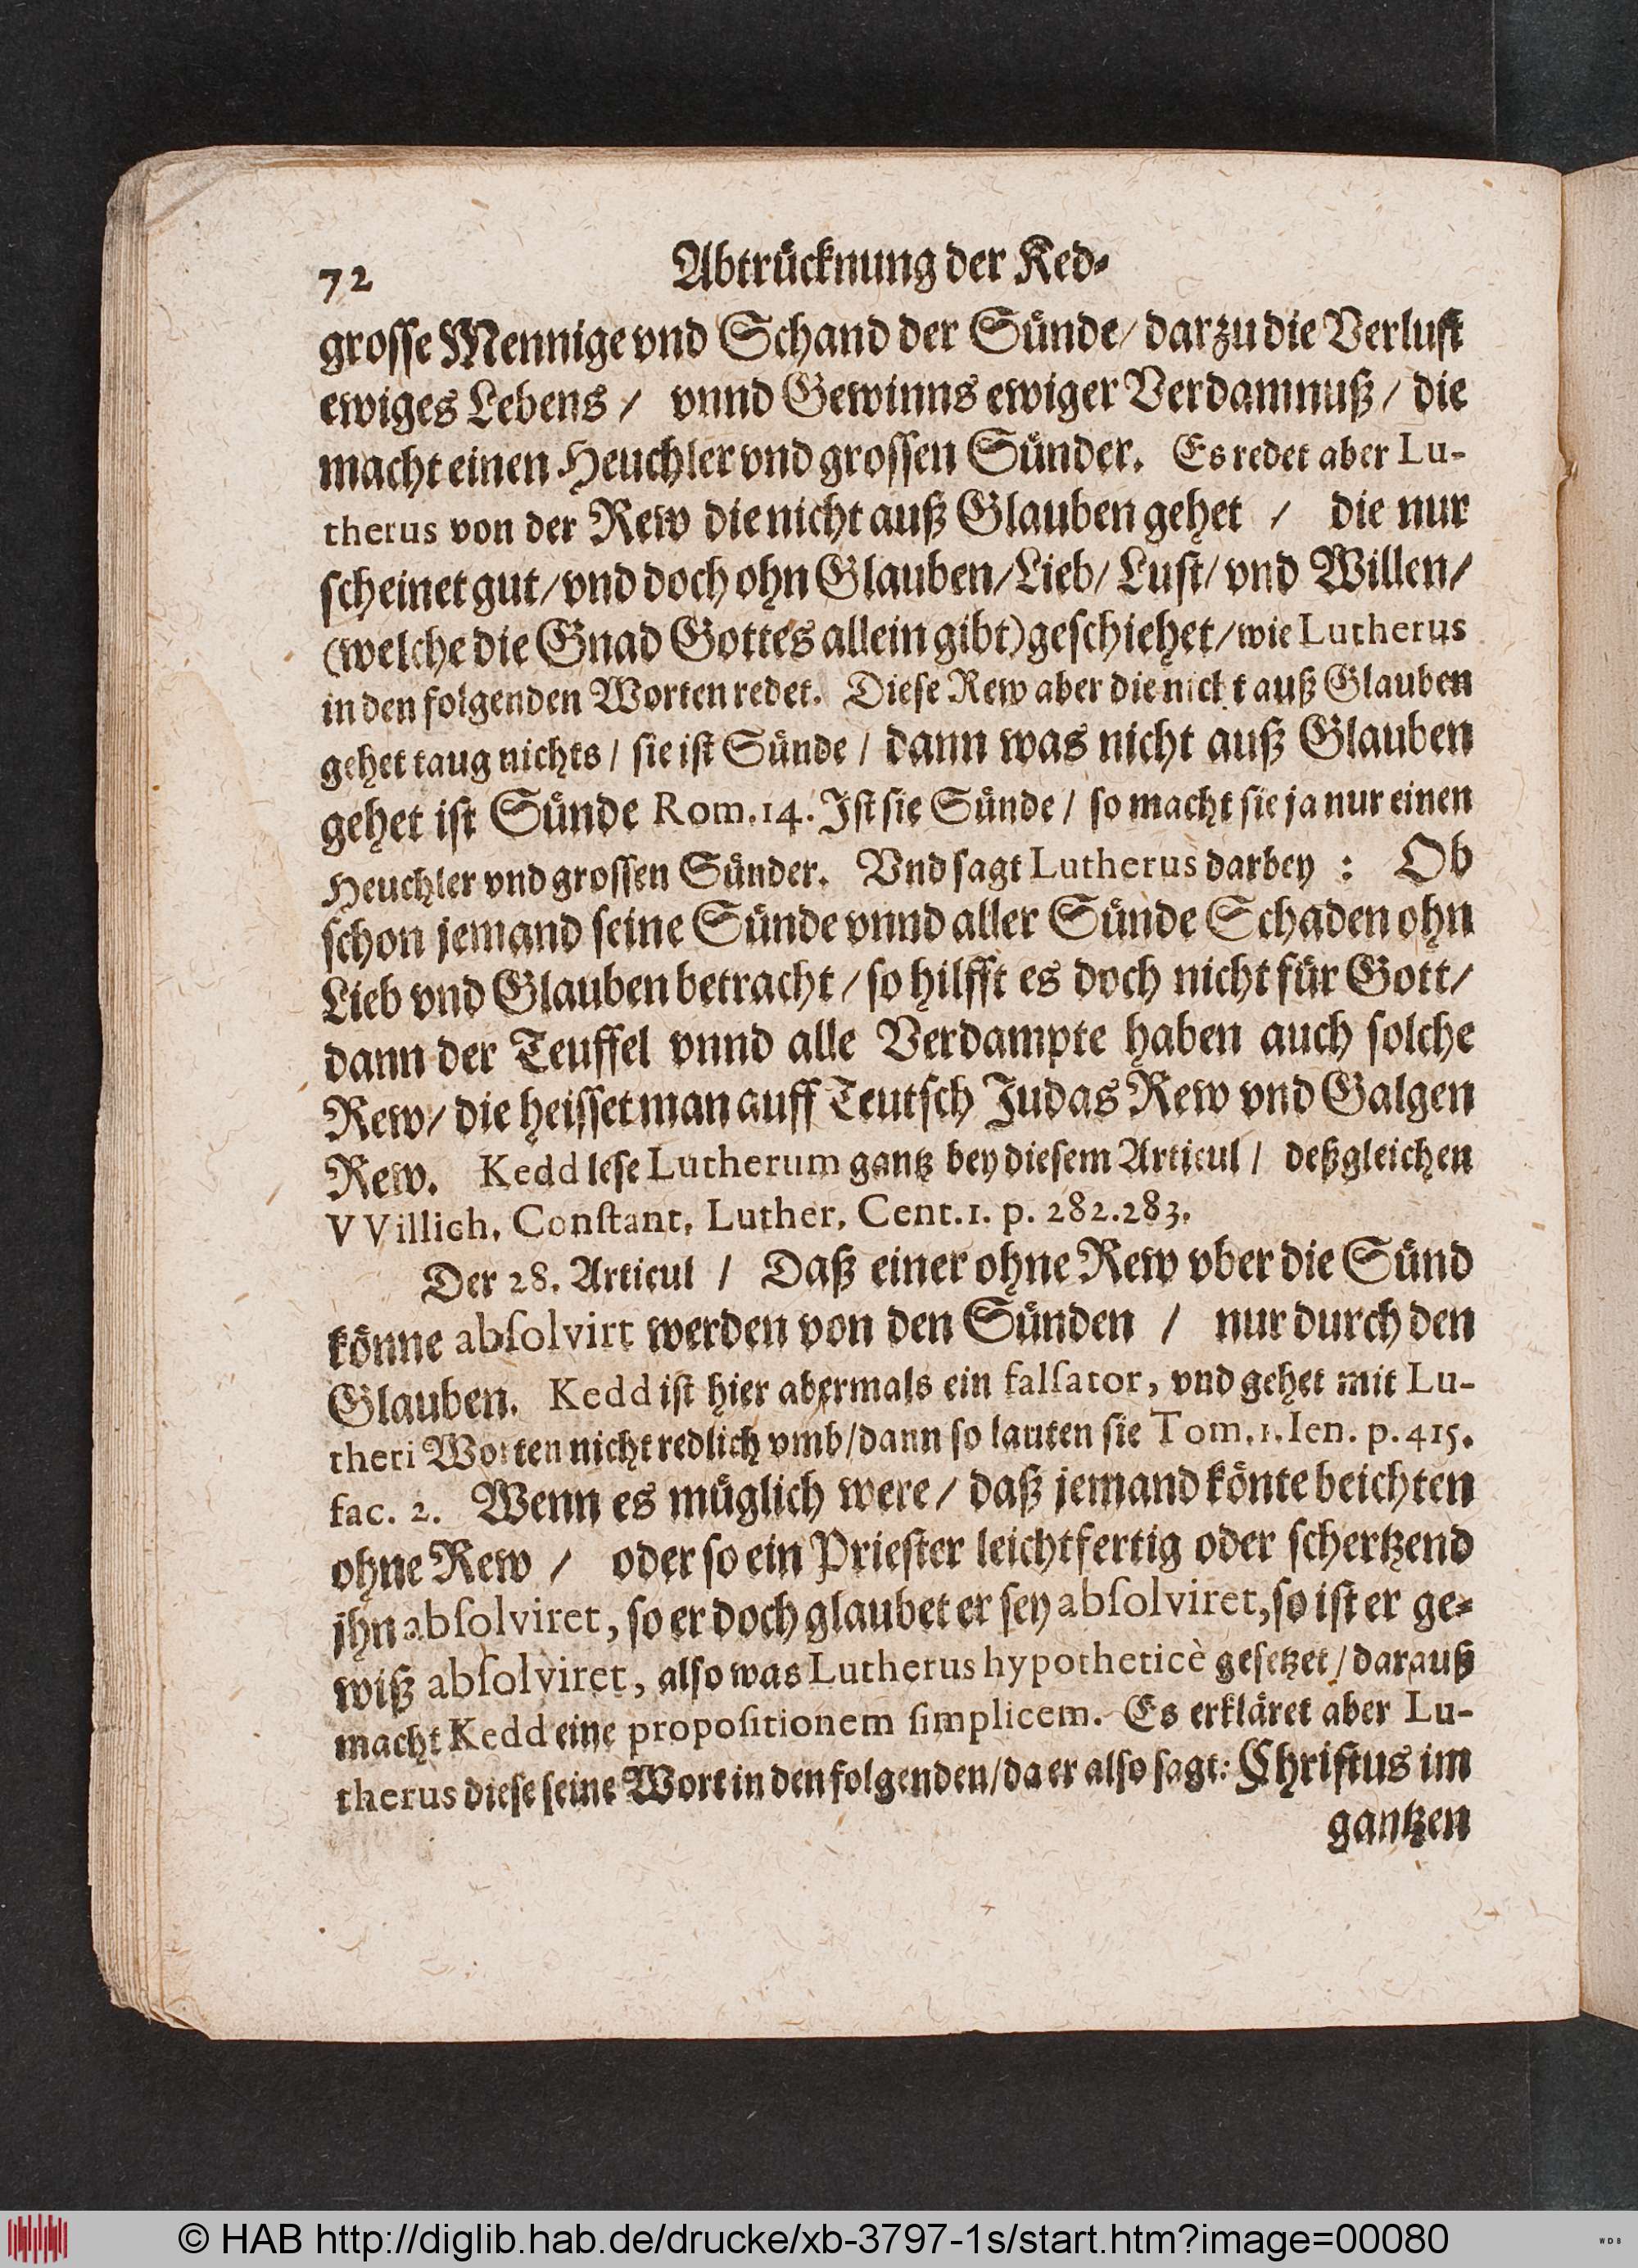 72 Abtrücknung der Ked-
grosse Mennige vnd Schand der Sünde/ darzu die Verlust
ewiges Lebens / vnnd Gewinns ewiger Verdamnuß / die
macht einen Heuchler vnd grossen Sünder. Es redet aber Lu-
therus von der Rew die nicht auß Glauben gehet / die nur
scheinet gut/ vnd doch ohn Glauben/ Lieb/ Lust/ vnd Willen/
(welche die Gnad Gottes allein gibt) geschiehet/ wie Lutherus
in den folgenden Worten redet. Diese Rew aber die nicht auß Glauben
gehet taug nichts / sie ist Sünde / dann was nicht auß Glauben
gehet ist Sünde Rom. 14. Ist sie Sünde / so macht sie ja nur einen
Heuchler vnd grossen Sünder. Vnd sagt Lutherus darbey : Ob
schon jemand seine Sünde vnnd aller Sünde Schaden ohn
Lieb vnd Glauben betracht / so hilfft es doch nicht für Gott/
dann der Teuffel vnnd alle Verdampte haben auch solche
Rew/ die heisset man auff Teutsch Judas Rew vnd Galgen
Rew. Kedd lese Lutherum gantz bey diesem Articul / deßgleichen
VVillich. Conſtant. Luther. Cent. 1. p. 282. 283.
Der 28. Articul / Daß einer ohne Rew vber die Sünd
könne abſolvirt werden von den Sünden / nur durch den
Glauben. Kedd ist hier abermals ein falſator, vnd gehet mit Lu-
theri Worten nicht redlich vmb/ dann so lauten sie Tom. 1. Ien. p. 415.
fac. 2. Wenn es müglich were / daß jemand könte beichten
ohne Rew / oder so ein Priester leichtfertig oder schertzend
jhn abſolviret, so er doch glaubet er sey abſolviret, so ist er ge-
wiß abſolviret, also was Lutherus hypotheticè gesetzet / darauß
macht Kedd eine propoſitionem ſimplicem. Es erkläret aber Lu-
therus diese seine Wort in den folgenden/ da er also sagt: Christus im
gantzen
© HAB http://diglib.hab.de/drucke/xb-3797-1s/start.htm?image=00080
WDB